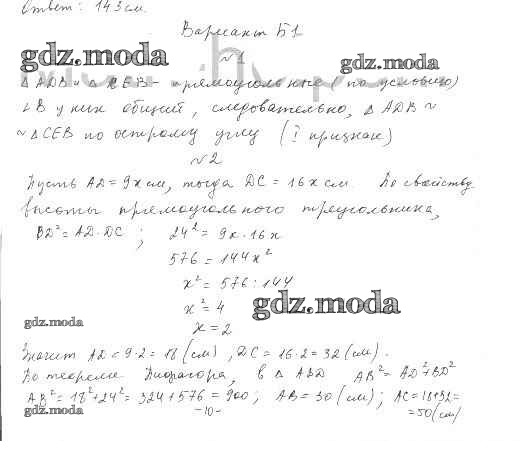 Ответ: 143 см.
Вариант Б1
gdz.moda
№1
gdz.moda
Δ ADB и Δ CEB - прямоугольные (по условию)
∠B у них общий, следовательно, Δ ADB ~
~ Δ CEB по острому углу (I признак)
№2
Пусть AD = 9x см, тогда DC = 16x см. По свойству
высоты прямоугольного треугольника,
BD² = AD · DC ; 24² = 9x · 16x
576 = 144x²
x² = 576 : 144
x² = 4
gdz.moda
gdz.moda
x = 2
Значит AD = 9 · 2 = 18 (см), DC = 16 · 2 = 32 (см).
По теореме Пифагора, в Δ ABD AB² = AD² + BD²
AB² = 18² + 24² = 324 + 576 = 900 ; AB = 30 (см) ; AC = 18 + 32 =
gdz.moda
-10-
= 50 (см)